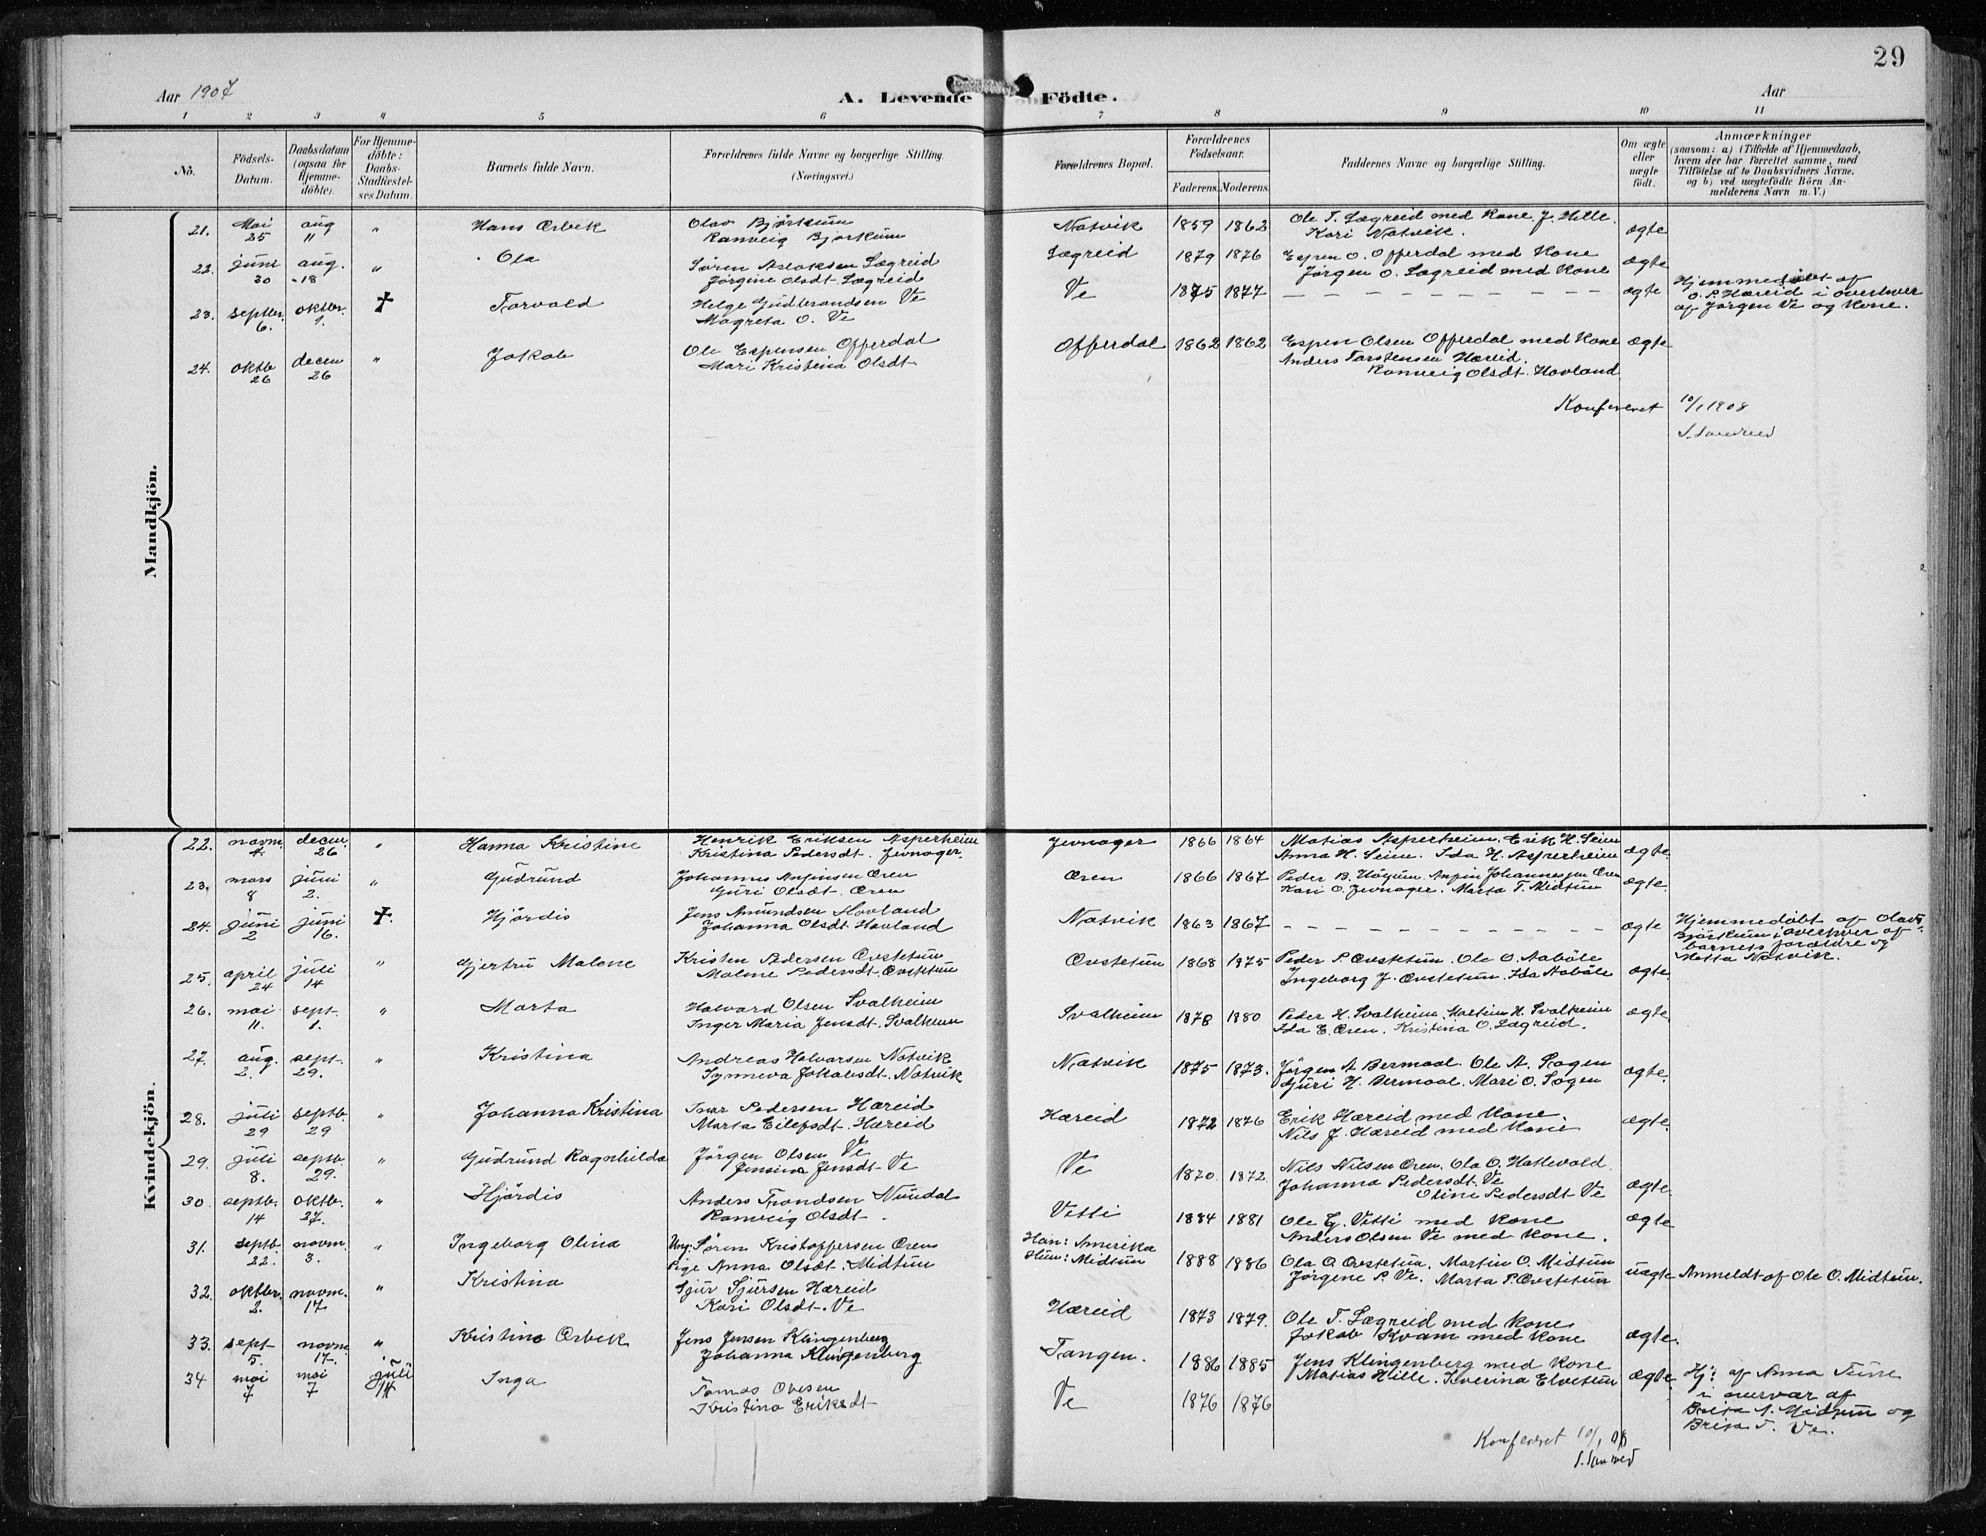 29
Aar 1907
A. Levende Födte.
Aar
1 2 3 4 5 6 7 8 9 10 11
No.
Födsels-
Datum.
Daabsdatum
(ogsaa for
Hjemme-
döbte).
For Hjemme-
döbte:
Daabs-
Stadfæstel-
ses Datum.
Barnets fulde Navn.
Forældrenes fulde Navne og borgerlige Stilling.
(Næringsvei.)
Forældrenes Bopæl.
Forældrenes
Födselsaar.
Faderens. Moderens.
Faddernes Navne og borgerlige Stilling.
Om ægte
eller
uægte
födt.
Anmærkninger
(saasom: a) i Tilfælde af Hjemmedaab,
hvem der har forrettet samme, med
Tilföielse af to Daabsvidners Navne,
og b) ved uægtefödte Börn An-
melderens Navn m. V.)
Mandkjön.
21. Mai 25 aug 11 " Hans Ørbek
Olav Bjørkum
Ranveig Bjørkum
Natvik 1859 1862
Ole T. Lægreid med Kone. J. Hille.
Kari Natvik.
ægte
22. juni 30 aug. 18 " Ola
Søren Aslaksen Lægreid
Jørgine Olsdt. Lægreid
Lægreid 1879 1876
Espen O. Offerdal med Kone
Jørgen O. Lægreid med Kone
ægte
23. septbr. 6. oktbr. 1. ✝ Torvald
Helge Gudbrandsen Ve
Magreta O. Ve
Ve 1875 1877 – – – – – – – – – – ægte
Hjemmedøbt af
O. P. Hæreid i overhver
af Jørgen Ve og Kone.
24. oktb 26 decem 26 " Jakob
Ole Espensen Offerdal
Mari Kristina Olsdt
Offerdal 1862 1862
Espen Olsen Offerdal med Kone
Anders Torstensen Hæreid.
Ranveig Olsdt. Hovland
ægte
Konfereret 10/1 1908
Kvindekjön.
22. novm 4. decm. 26 " Hanna Kristine
Henrik Eriksen Asperheim
Kristina Pedersdt. Jevnager.
Jevnager 1866 1864
Matias Asperheim. Erik H. Seim
Anna H. Seim. Ida H. Asperheim
ægte.
23. mars 8 juni 2. " Gudrund
Johannes Anfinsen Øren
Guri Olsdt. Øren
Øren 1866 1867
Peder B. Høgum. Anfin Johannessen Øren
Kari O. Jevnager. Marta T. Midtun
ægte.
24. juni 2 juni 16. ✝. Hjørdis
Jens Amundsen Hovland
Johanna Olsdt. Hovland
Natvik 1863 1867 – – – – – – – – – – ægte
Hjemmedøbt af Olav
Bjørkum i overhver af
barnets forældre og
Metta Natvik.
25. april 24 juli 14 " Gjertru Malene
Kristen Pedersen Øvstetun
Malene Pedersdt. Øvstetun
Øvstetun 1868 1875
Peder P. Øvstetun. Ole O. Aabøle
Ingeborg J. Øvstetun. Ida Aabøle
ægte.
26. mai 11. sept. 1. " Marta
Halvard Olsen Svalheim
Inger Maria Jensdt. Svalheim
Svalheim 1878 1880
Peder H. Svalheim. Martin H. Svalheim
Ida E. Øren. Kristina O. Lægreid.
ægte.
27. aug. 2. sept. 29. " Kristina
Andreas Halvarsen Natvik
Synneva Johansdt. Natvik
Natvik 1875 1873.
Jørgen A. Bermaal. Ole A. Sogen
Guri H. Bermaal. Mari O. Sogen
ægte.
28. juli 29 septb. 29 " Johanna Kristina
Ivar Pedersen Hæreid
Marta Eilefsdt. Hæreid
Hæreid 1872 1876
Erik Hæreid med Kone.
Nils J. Hæreid med Kone
ægte.
29. juli 8. septb. 29. " Gudrund Ragnhilda
Jørgen Olsen Ve
Jensina Jensdt. Ve
Ve 1870 1872
Nils Nilsen Øren. Ola O. Hattevald.
Johanna Pedersdt. Ve
Oline Pedersdt. Ve
ægte.
30. septb. 14 oktb. 27. " Hjørdis
Anders Trondsen Nundal
Ranveig Olsdt.
Vetti 1884 1881
Ole G. Vetti med Kone
Anders Olsen Ve med Kone.
ægte
31. septb. 22. novm. 3. " Ingeborg Olina
Ung: Søren Kristoffersen Øren
Pige Anna Olsdt. Midtun
Han: Amerika
Hun: Midtun
1888 1886
Ola O. Øvstetun. Martin O. Midtun
Jørgene P. Ve. Marta P. Øvstetun
uægte Anmeldt af Ole O. Midtun.
32. oktbr. 2. novm. 17. " Kristina
Sjur Sjursen Hæreid
Kari Olsdt. Ve
Hæreid 1873 1879.
Ole T. Lægreid med Kone
Jakob Kvam med Kone
ægte.
33. sept 5. novm 17. " Kristine Ørbek
Jens Jensen Klingenberg
Johanna Klingenberg
Tangen. 1886 1885
Jens Klingenberg med Kone
Matias Hille. Severina Elvetun
ægte.
34 mai 7 mai 7 juli 14 Inga
Tomas Ovesen
Kristina Eriksdt
Ve 1876 1876
Hj: af Anna Tune
i overvær af
Brita A. Midtun og
Brita T. Ve.
Konfereret 10/1 08